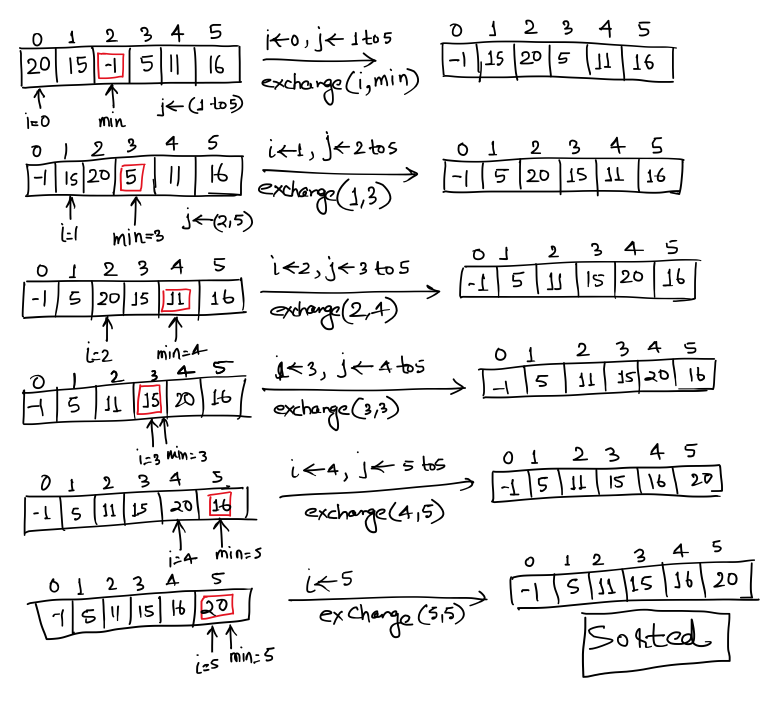 0 1 2 3 4 5
20 15 -1 5 11 16
i=0 min j←(1 to 5)
i←0, j← 1 to 5
exchange(i, min)
0 1 2 3 4 5
-1 15 20 5 11 16
0 1 2 3 4 5
-1 15 20 5 11 16
i=1 min=3 j←(2,5)
i←1, j←2 to 5
exchange(1,3)
0 1 2 3 4 5
-1 5 20 15 11 16
0 1 2 3 4 5
-1 5 20 15 11 16
i=2 min=4
i←2, j←3 to 5
exchange(2,4)
0 1 2 3 4 5
-1 5 11 15 20 16
0 1 2 3 4 5
-1 5 11 15 20 16
i=3 min=3
i←3, j←4 to 5
exchange(3,3)
0 1 2 3 4 5
-1 5 11 15 20 16
0 1 2 3 4 5
-1 5 11 15 20 16
i=4 min=5
i←4, j← 5 to 5
exchange(4,5)
0 1 2 3 4 5
-1 5 11 15 16 20
0 1 2 3 4 5
-1 5 11 15 16 20
i=5 min=5
i←5
exchange(5,5)
0 1 2 3 4 5
-1 5 11 15 16 20
Sorted